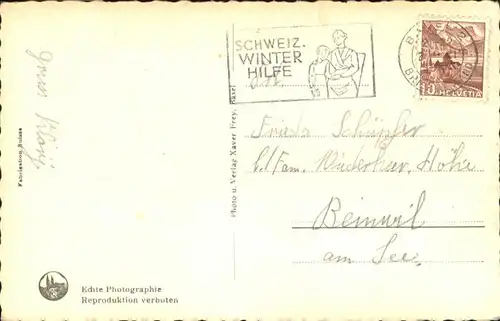 SCHWEIZ.
WINTER
HILFE
10 HELVETIA
Frieda Schüpfer
b./Fam. Höhe
Beinwil
am See.
Photo u. Verlag Xaver Frey, Basel
Fabrication Suisse
Echte Photographie
Reproduktion verboten